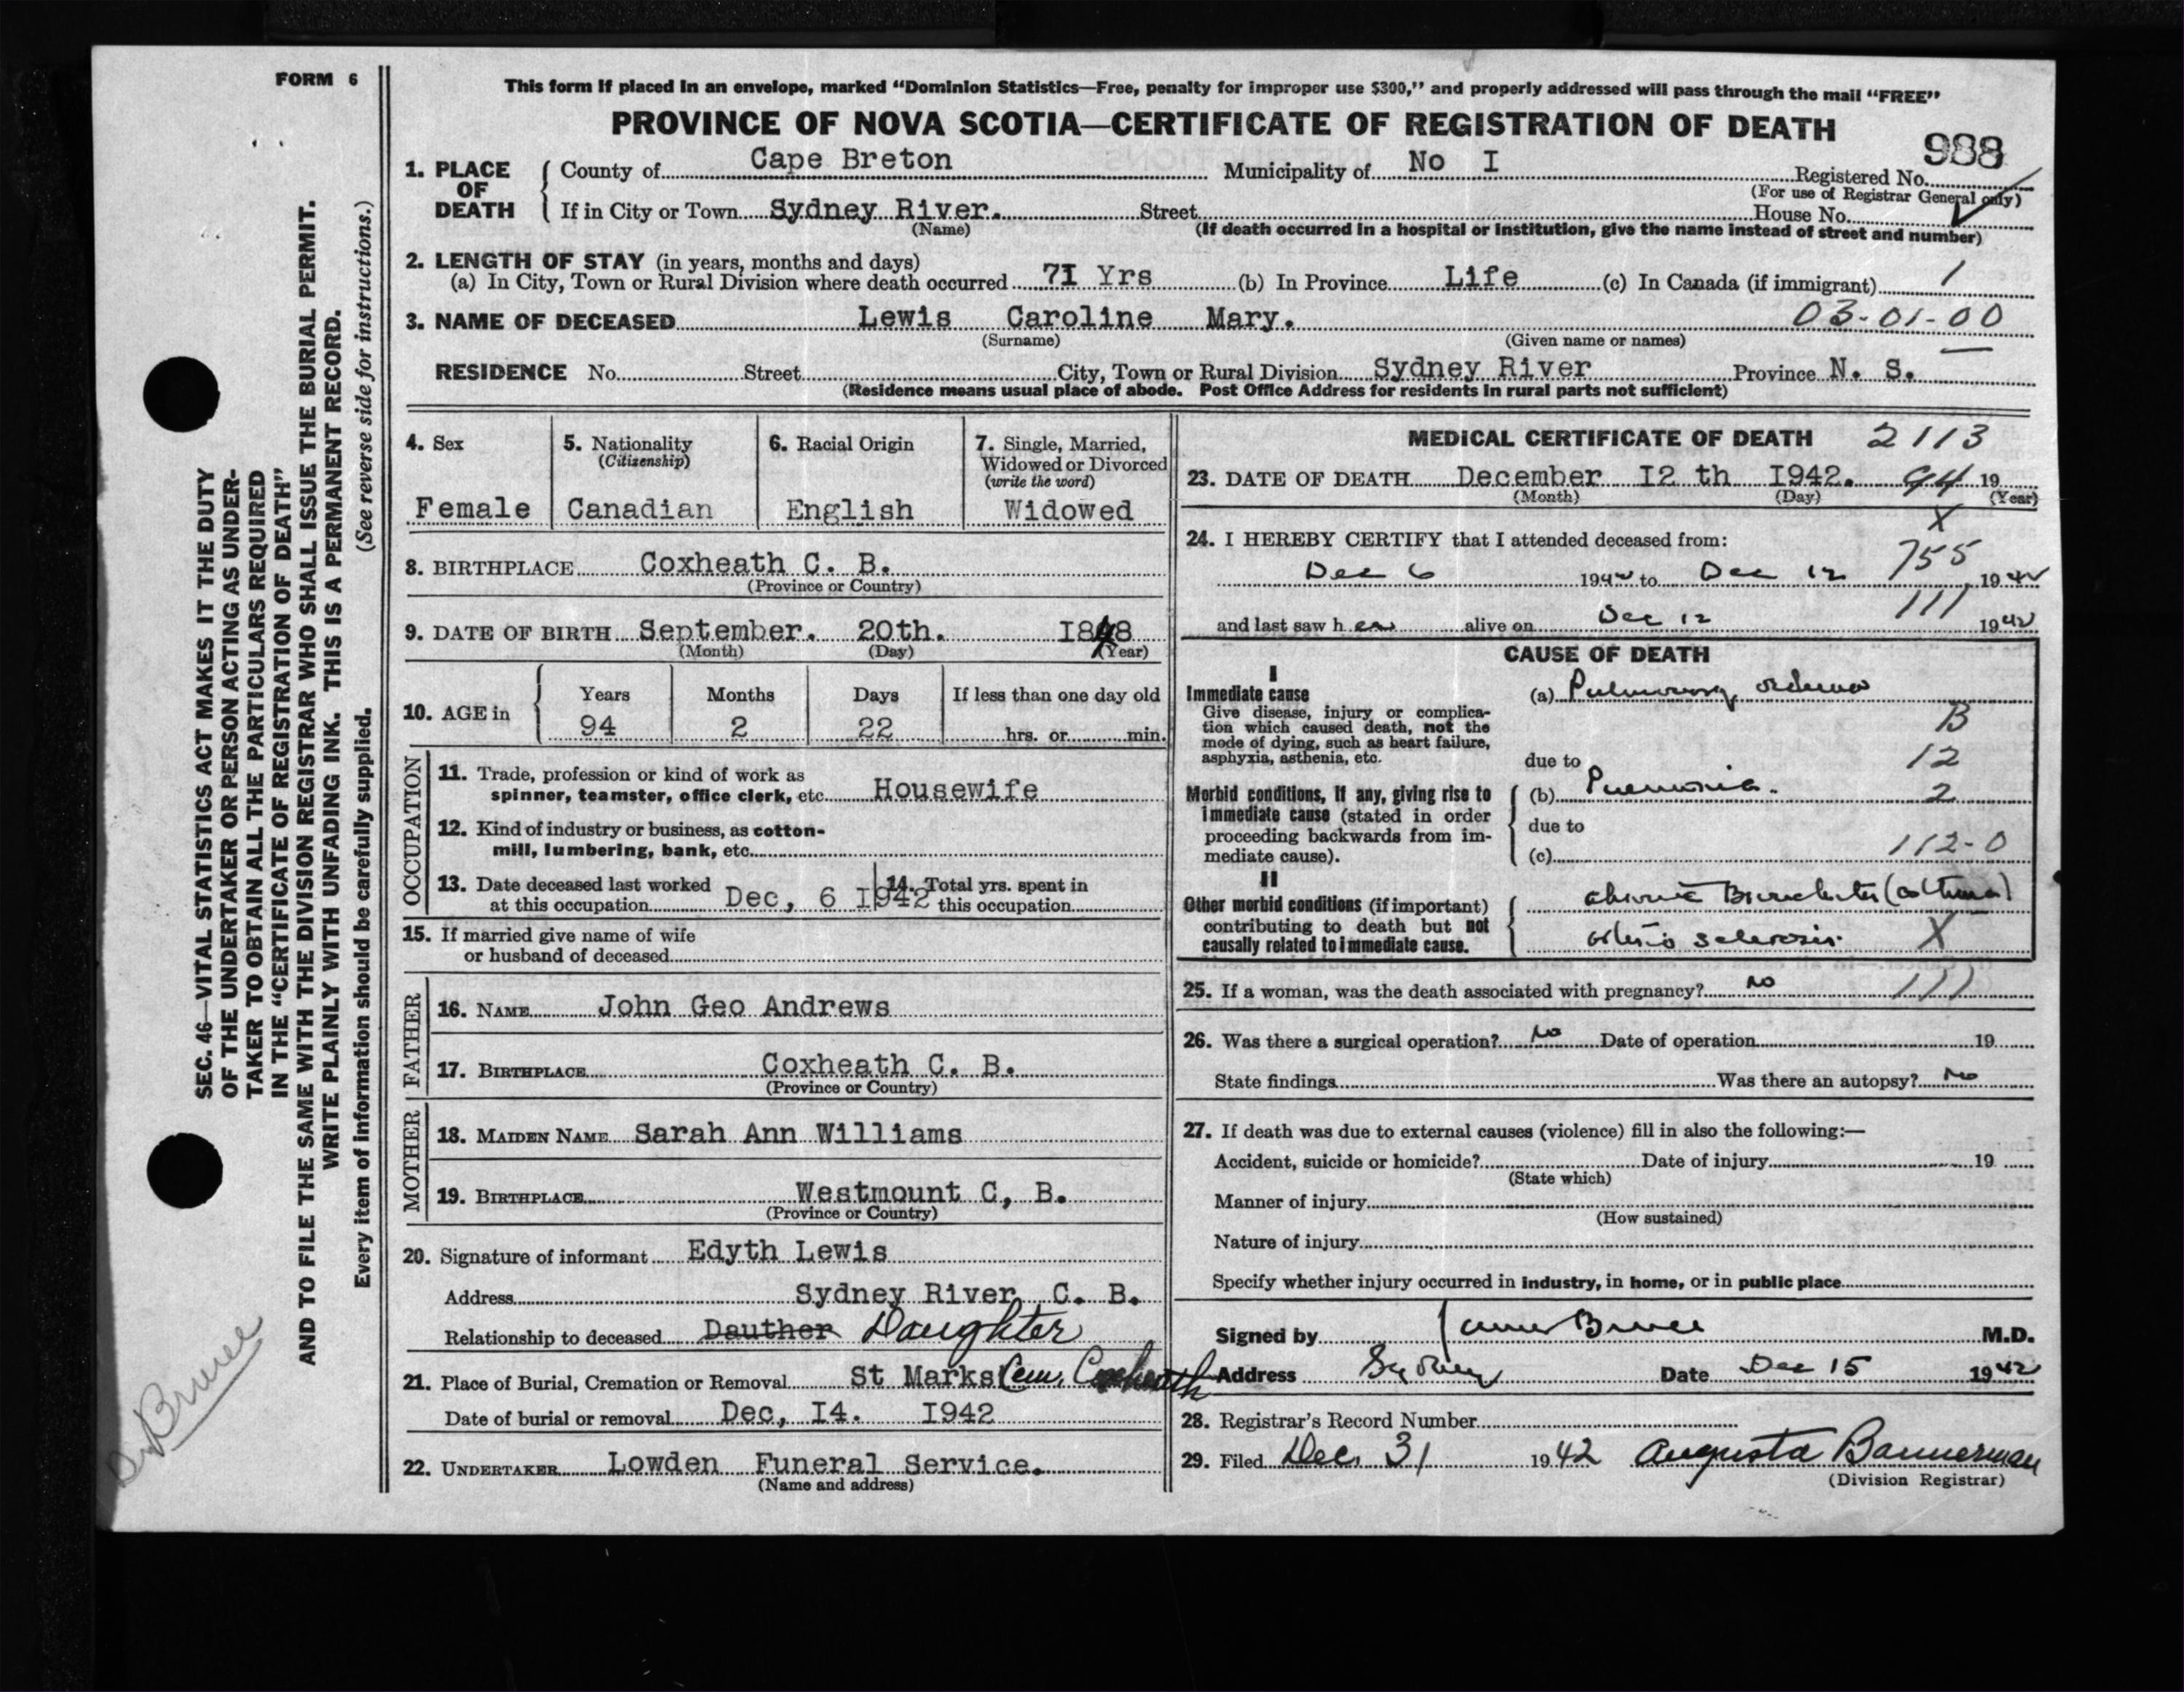 FORM 6
This form if placed in an envelope, marked “Dominion Statistics—Free, penalty for improper use $300,” and properly addressed will pass through the mail “FREE”
PROVINCE OF NOVA SCOTIA—CERTIFICATE OF REGISTRATION OF DEATH
988
1. PLACE OF DEATH County of Cape Breton Municipality of No I Registered No.
(For use of Registrar General only)
If in City or Town Sydney River. Street House No.
(Name) (If death occurred in a hospital or institution, give the name instead of street and number)
2. LENGTH OF STAY (in years, months and days)
(a) In City, Town or Rural Division where death occurred 7I Yrs (b) In Province Life (c) In Canada (if immigrant) 1
3. NAME OF DECEASED Lewis Caroline Mary. 03-01-00
(Surname) (Given name or names)
RESIDENCE No. Street City, Town or Rural Division Sydney River Province N. S.
(Residence means usual place of abode. Post Office Address for residents in rural parts not sufficient)
4. Sex
Female
5. Nationality
(Citizenship)
Canadian
6. Racial Origin
English
7. Single, Married,
Widowed or Divorced
(write the word)
Widowed
8. BIRTHPLACE Coxheath C. B.
(Province or Country)
9. DATE OF BIRTH September. 20th. I848
(Month) (Day) (Year)
10. AGE in
Years Months Days If less than one day old
94 2 22 hrs. or min.
OCCUPATION
11. Trade, profession or kind of work as
spinner, teamster, office clerk, etc. Housewife
12. Kind of industry or business, as cotton-
mill, lumbering, bank, etc.
13. Date deceased last worked
at this occupation Dec, 6 I942
14. Total yrs. spent in
this occupation
15. If married give name of wife
or husband of deceased
FATHER
16. NAME John Geo Andrews
17. BIRTHPLACE Coxheath C. B.
(Province or Country)
MOTHER
18. MAIDEN NAME Sarah Ann Williams
19. BIRTHPLACE Westmount C, B.
(Province or Country)
20. Signature of informant Edyth Lewis
Address Sydney River C. B.
Relationship to deceased Dauther Daughter
21. Place of Burial, Cremation or Removal St Marks Cem. Coxheath
Date of burial or removal Dec, I4. I942
22. UNDERTAKER Lowden Funeral Service.
(Name and address)
MEDICAL CERTIFICATE OF DEATH 2113
23. DATE OF DEATH December I2 th I942. 94 19
(Month) (Day) (Year)
X
24. I HEREBY CERTIFY that I attended deceased from:
755
Dec 6 1942 to Dec 12 1942
111
and last saw h er alive on Dec 12 1942
CAUSE OF DEATH
I
Immediate cause
Give disease, injury or complica-
tion which caused death, not the
mode of dying, such as heart failure,
asphyxia, asthenia, etc.
(a) Pulmonary oedema
B
due to 12
Morbid conditions, if any, giving rise to
immediate cause (stated in order
proceeding backwards from im-
mediate cause).
(b) Pneumonia. 2
due to
(c) 112-0
II
Other morbid conditions (if important)
contributing to death but not
causally related to immediate cause.
chronic Bronchitis (asthma)
arterio sclerosis. X
25. If a woman, was the death associated with pregnancy? no 111
26. Was there a surgical operation? No Date of operation 19
State findings Was there an autopsy? No
27. If death was due to external causes (violence) fill in also the following:—
Accident, suicide or homicide? Date of injury 19
(State which)
Manner of injury
(How sustained)
Nature of injury
Specify whether injury occurred in industry, in home, or in public place
Signed by James Bruce M.D.
Address Sydney Date Dec 15 1942
28. Registrar's Record Number
29. Filed Dec. 31 1942 Augusta Bannerman
(Division Registrar)
SEC. 46—VITAL STATISTICS ACT MAKES IT THE DUTY
OF THE UNDERTAKER OR PERSON ACTING AS UNDER-
TAKER TO OBTAIN ALL THE PARTICULARS REQUIRED
IN THE “CERTIFICATE OF REGISTRATION OF DEATH”
AND TO FILE THE SAME WITH THE DIVISION REGISTRAR WHO SHALL ISSUE THE BURIAL PERMIT.
WRITE PLAINLY WITH UNFADING INK. THIS IS A PERMANENT RECORD.
Every item of information should be carefully supplied. (See reverse side for instructions.)
Dr Bruce